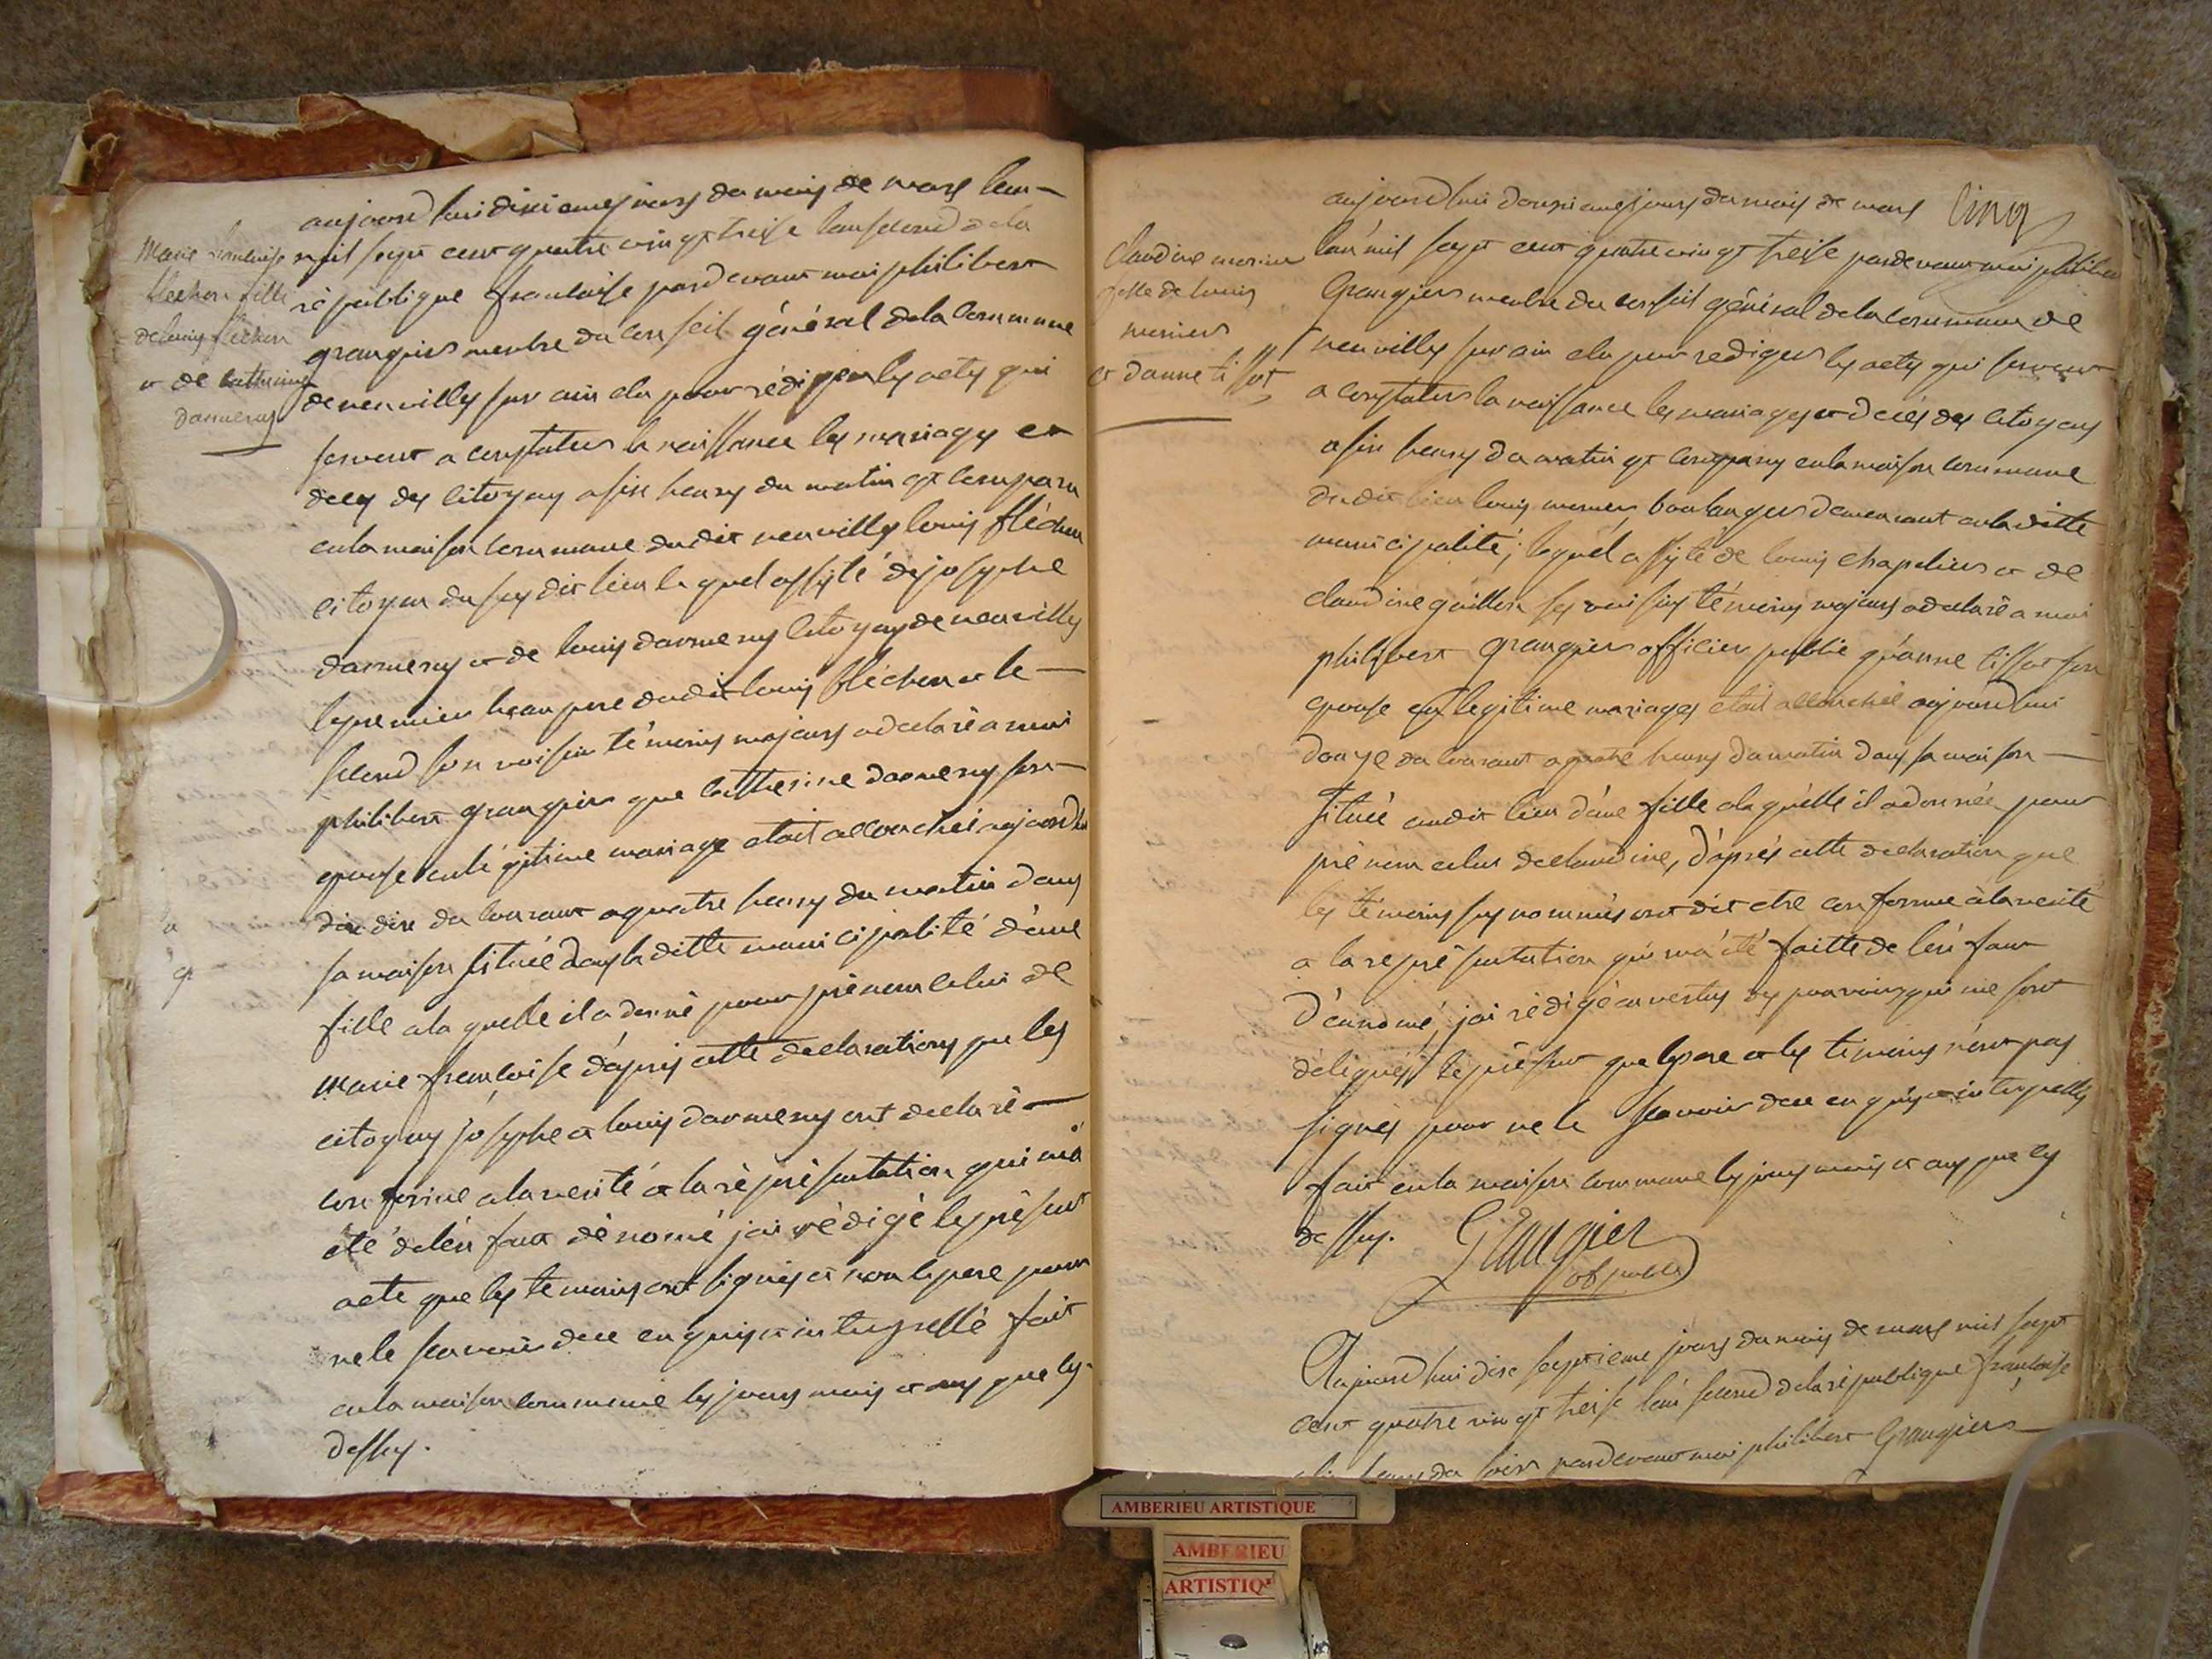 Marie francoise
flechon fille
de louis flechon
et de catherine
darmeny
aujourdhui dixiemes jours du mois de mars lan
mil sept cent quatre vingt treise lan second de la
république francoise pardevant moi philibert
grangiers menbre du conseil général de la commune
de neuville sur ain elu pour rédiger les actes qui
servent a constater la naissance les mariages et
deces des citoyens a six heures du matin est comparu
en la maison commune dudit neuville louis fléchon
citoyen du susdit lieu lequel assisté de josephe
darmeny et de louis darmeny citoyens de neuville
le premier beau pere dudit louis fléchon et le
second son voisin témoins majeurs a declaré a moi
philibert grangiers que catherine darmeny son
epouse en légitime mariage etoit accouchée aujourdhui
dix du courant a quatre heures du matin dans
sa maison située dans la ditte municipalité d'une
fille a la quelle il a donné pour prénom celui de
marie francoise d'apres cette declarations que les
citoyens josephe et louis darmeny ont declaré
conforme a la verité et la représentation qui m'a
été de l'enfant dénomé jai rédigé le présent
acte que les temoins ont signés et non le pere pour
ne le scavoir de ce enquis et interpellé fait
en la maison commune les jours mois et ans que cy
dessus.
cinq
claudine mernier
fille de louis
merniers
et d'anne tissot
aujourdhui douxiemes jours du mois de mars
lan mil sept cent quatre vingt treise pardevant moi philibert
Grangiers menbre du conseil général de la commune de
neuville sur ain elu pour rediger les actes qui servent
a constater la naissance les mariages et décés des citoyens
a six heures du matin est comparus en la maison commune
du dit lieu louis mernier boulanger demeurant en la ditte
municipalité; lequel assisté de louis chapelier et de
claudine guillon ses voisins témoins majeurs a declaré a moi
philibert Grangiers officier public qu'anne tissot son
epouse en legitime mariages etait accouchée aujourdhui
douze du courant a quatre heures du matin dans sa maison
située audit lieu d'une fille a la quelle il a donnée pour
prénom celui de claudine, d'aprés cette declaration que
les témoins susnommés ont dit etre conforme à la verité
a la représentation qui m'a été faitte de l'enfant
dénomé, jai rédigé en vertus des pouvoirs qui me sont
délégués le présent que le pere et les temoins n'ont pas
signés pour ne le scavoir de ce enquis et interpellés
fait en la maison commune les jours mois et ans que cy
dessus. Grangier
of public
Aujourdhui dix septieme jours du mois de mars mil sept
cent quatre vingt treise l'an second de la république francoise
heures du soir pardevant moi philibert Grangiers
AMBERIEU ARTISTIQUE
AMBERIEU
ARTISTIQUE